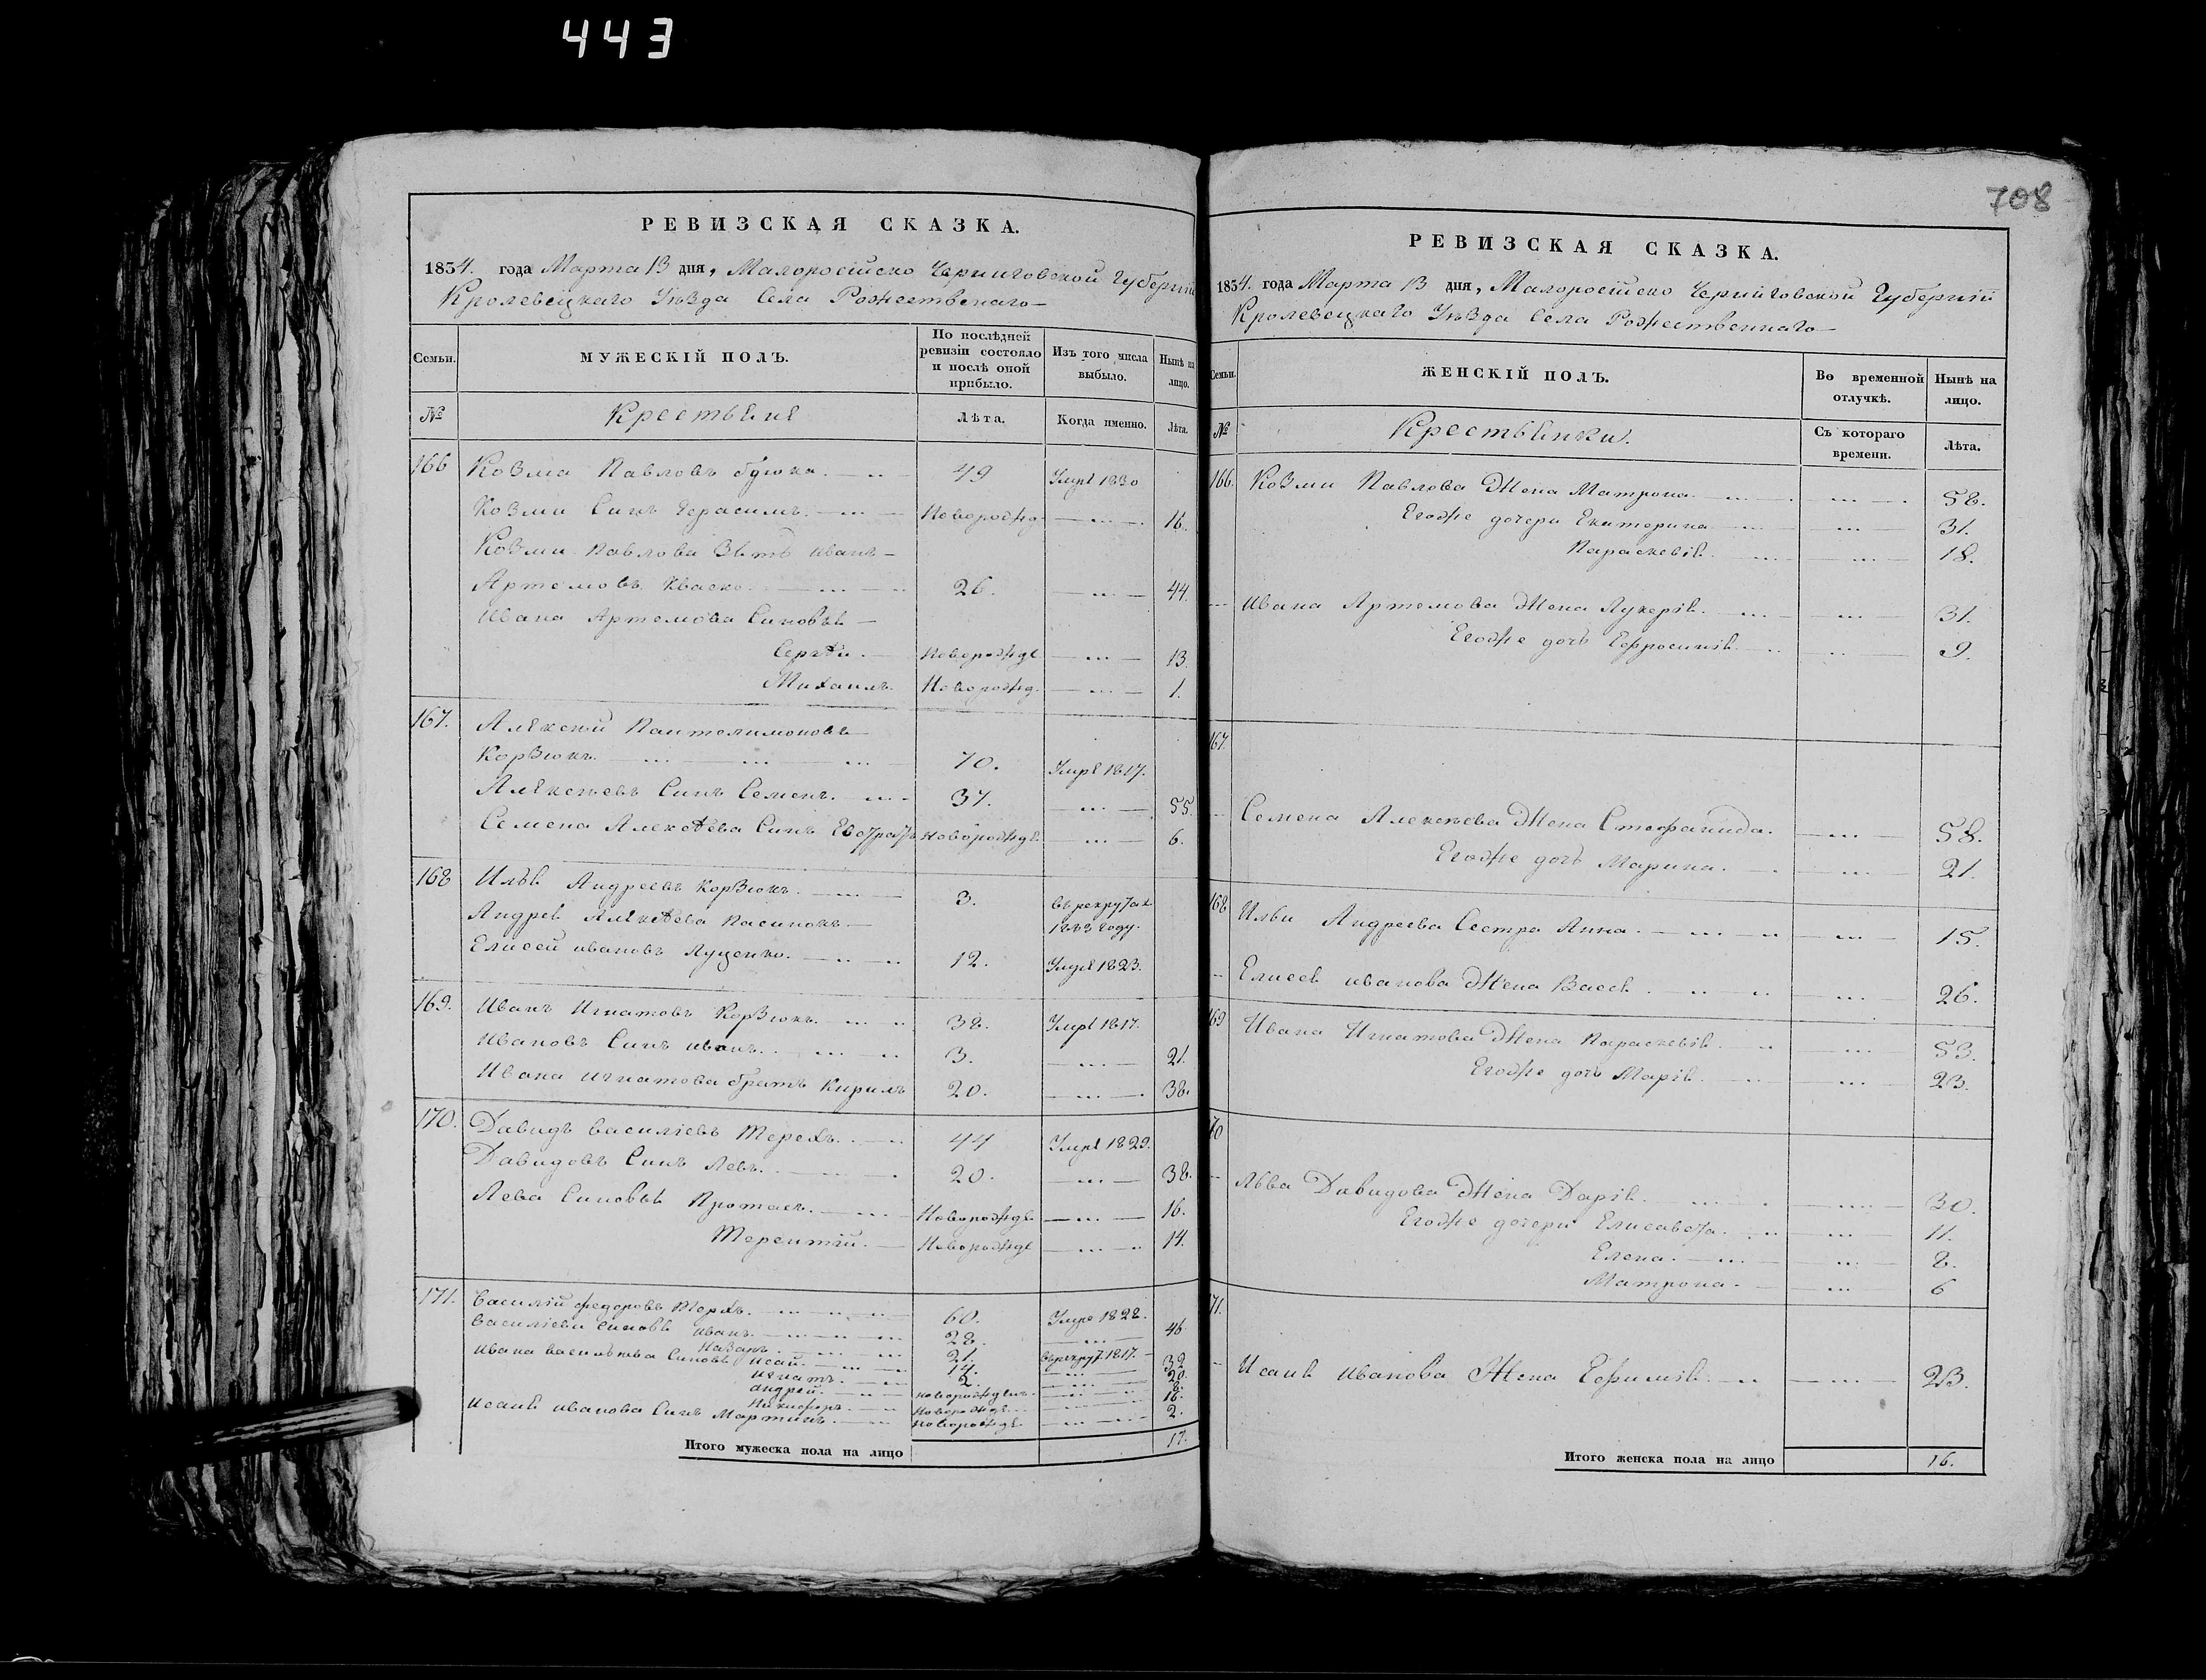 443
708
РЕВИЗСКАЯ СКАЗКА.
1834. года Марта 13 дня, Малоросійско Черниговской Губерніи
Кролевецкаго Уѣзда Села Рожественаго
Семьи.
МУЖЕСКІЙ ПОЛЪ.
По послѣдней ревизіи состояло и послѣ оной прибыло.
Изъ того числа выбыло.
Нынѣ на лицо.
№
Крестьяне
Лѣта.
Когда именно.
Лѣта.
166 Козма Павловъ 49 Умре 1830
Козми Синъ Герасимъ. Новорожд 16.
Козми Павлова Зять иванъ
Артемовъ Кваско. 26. 44.
Ивана Артемова Синовья
Сергѣи. Новорожде 13.
Михаилъ. Новорожд. 1.
167. Алексий Пантелимоновъ
Корзюкъ. 70. Умре 1817.
Алексѣевъ Синъ Семенъ. 37. 55.
Семена Алексѣева Синъ Евстратъ новорожде 6.
168 Илья Андреевъ Корзюкъ. 3. въ рекрутах
1833 году.
Андрея Алексѣева Пасинокъ
Елисей ивановъ Луценко. 12. Умре 1823.
169. Иванъ Игнатовъ Корзюкъ. 38. Умре 1817.
Ивановъ Синъ иванъ. 3. 21.
Ивана игнатова братъ Кирилъ 20. 38.
170. Давидъ василіевъ Терехъ. 44 Умре 1829.
Давидовъ Синъ Левъ. 20. 38.
Лева Синовья Протасъ. Новорожде 16.
Терентій. Новорожде 14.
171. Василий федоровъ Терехъ. 60. Умре 1828.
Василіеви синовя иванъ. 28. 46
Назаръ. 21. въ рекрут. 1817.
Ивана василѣева Синовя исай. 14. 32
игнатъ. 2. 20.
андрей. новорожденъ.
Никифоръ. Новорожде 16.
Исаия иванова Синъ Мартинъ. новорожде 2.
Итого мужеска пола на лицо 17.
РЕВИЗСКАЯ СКАЗКА.
1834. года Марта 13 дня, Малоросійско Черниговской Губерніи
Кролевецкаго Уѣзда Села Рожественнаго
Семьи.
ЖЕНСКІЙ ПОЛЪ.
Во временной отлучкѣ.
Нынѣ на лицо.
№
Крестьянки.
Съ котораго времени.
Лѣта.
166. Козми Павлова Жена Матрона. 58.
Егоже дочери Екатерина 31.
Параскевія. 18.
Ивана Артемова Жена Лукерія. 31.
Егоже дочь Ефросинія. 9.
167.
Семена Алексѣева Жена Стефанида. 58.
Егоже дочь Марина. 21.
168 Ильи Андреева Сестра Анна. 15.
Елисея иванова Жена Васса. 26.
169 Ивана Игнатова Жена Параскевія 53.
Егоже дочь Марія. 23.
170
Льва Давидова Жена Дарія. 30.
Егоже дочери Елисавета. 11.
Елена. 8.
Матрона. 6
171.
Исаия иванова Жена Ефимія. 23.
Итого женска пола на лицо 16.